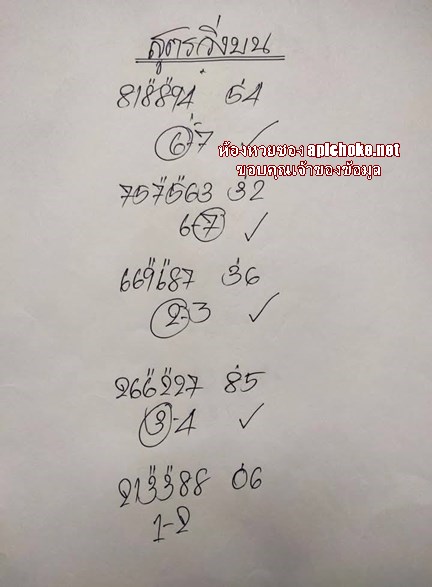 สูตรวิ่งบน
818894 54
6-7 ✓
ห้องหวยของ apichoke.net
ขอบคุณเจ้าของข้อมูล
757563 32
6-7 ✓
669687 36
2-3 ✓
266227 85
3-4 ✓
213388 06
1-2